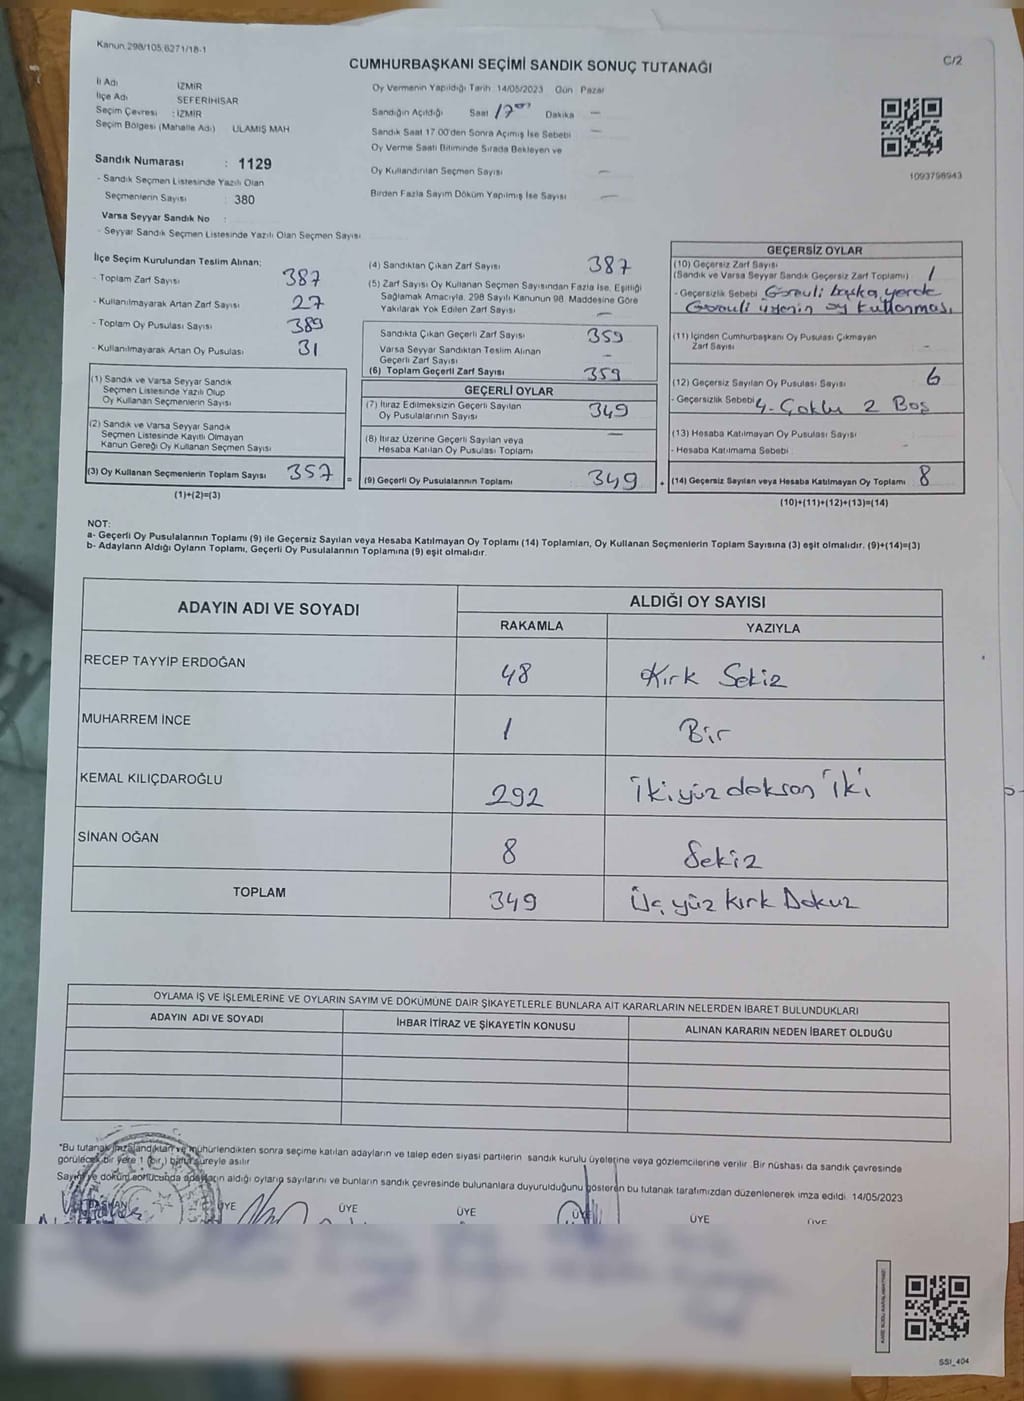 Kanun 298/105,6271/18-1
CUMHURBAŞKANI SEÇİMİ SANDIK SONUÇ TUTANAĞI
C/2
İl Adı İZMİR
İlçe Adı SEFERİHİSAR
Seçim Çevresi : İZMİR
Seçim Bölgesi (Mahalle Adı) ULAMIŞ MAH
Sandık Numarası : 1129
- Sandık Seçmen Listesinde Yazılı Olan
Seçmenlerin Sayısı 380
Varsa Seyyar Sandık No :
- Seyyar Sandık Seçmen Listesinde Yazılı Olan Seçmen Sayısı
Oy Vermenin Yapıldığı Tarih 14/05/2023 Gün Pazar
Sandığın Açıldığı Saat 17 00 Dakika —
Sandık Saat 17.00'den Sonra Açılmış İse Sebebi —
Oy Verme Saati Bitiminde Sırada Bekleyen ve
Oy Kullandırılan Seçmen Sayısı —
Birden Fazla Sayım Döküm Yapılmış İse Sayısı —
1093798943
İlçe Seçim Kurulundan Teslim Alınan;
- Toplam Zarf Sayısı 387
- Kullanılmayarak Artan Zarf Sayısı 27
- Toplam Oy Pusulası Sayısı 389
- Kullanılmayarak Artan Oy Pusulası 31
(1) Sandık ve Varsa Seyyar Sandık
Seçmen Listesinde Yazılı Olup
Oy Kullanan Seçmenlerin Sayısı
(2) Sandık ve Varsa Seyyar Sandık
Seçmen Listesinde Kayıtlı Olmayan
Kanun Gereği Oy Kullanan Seçmen Sayısı
(3) Oy Kullanan Seçmenlerin Toplam Sayısı 357 =
(1)+(2)=(3)
(4) Sandıktan Çıkan Zarf Sayısı 387
(5) Zarf Sayısı Oy Kullanan Seçmen Sayısından Fazla İse, Eşitliği
Sağlamak Amacıyla, 298 Sayılı Kanunun 98. Maddesine Göre
Yakılarak Yok Edilen Zarf Sayısı —
Sandıkta Çıkan Geçerli Zarf Sayısı 359
Varsa Seyyar Sandıktan Teslim Alınan
Geçerli Zarf Sayısı -
(6) Toplam Geçerli Zarf Sayısı 359
GEÇERLİ OYLAR
(7) İtiraz Edilmeksizin Geçerli Sayılan
Oy Pusulalarının Sayısı 349
(8) İtiraz Üzerine Geçerli Sayılan veya
Hesaba Katılan Oy Pusulası Toplamı —
(9) Geçerli Oy Pusulalarının Toplamı 349
GEÇERSİZ OYLAR
(10) Geçersiz Zarf Sayısı
(Sandık ve Varsa Seyyar Sandık Geçersiz Zarf Toplamı) 1
- Geçersizlik Sebebi Görevli başka yerde
Görevli üyenin oy kullanması
(11) İçinden Cumhurbaşkanı Oy Pusulası Çıkmayan
Zarf Sayısı -
(12) Geçersiz Sayılan Oy Pusulası Sayısı 6
- Geçersizlik Sebebi 4 - Çoklu 2 Boş
(13) Hesaba Katılmayan Oy Pusulası Sayısı
- Hesaba Katılmama Sebebi -
(14) Geçersiz Sayılan veya Hesaba Katılmayan Oy Toplamı 8
(10)+(11)+(12)+(13)=(14)
NOT:
a- Geçerli Oy Pusulalarının Toplamı (9) ile Geçersiz Sayılan veya Hesaba Katılmayan Oy Toplamı (14) Toplamları, Oy Kullanan Seçmenlerin Toplam Sayısına (3) eşit olmalıdır. (9)+(14)=(3)
b- Adayların Aldığı Oyların Toplamı, Geçerli Oy Pusulalarının Toplamına (9) eşit olmalıdır.
ADAYIN ADI VE SOYADI
ALDIĞI OY SAYISI
RAKAMLA YAZIYLA
RECEP TAYYİP ERDOĞAN 48 Kırk Sekiz
MUHARREM İNCE 1 Bir
KEMAL KILIÇDAROĞLU 292 İkiyüz doksan iki
SİNAN OĞAN 8 Sekiz
TOPLAM 349 Üç yüz kırk Dokuz
OYLAMA İŞ VE İŞLEMLERİNE VE OYLARIN SAYIM VE DÖKÜMÜNE DAİR ŞİKAYETLERLE BUNLARA AİT KARARLARIN NELERDEN İBARET BULUNDUKLARI
ADAYIN ADI VE SOYADI İHBAR İTİRAZ VE ŞİKAYETİN KONUSU ALINAN KARARIN NEDEN İBARET OLDUĞU
"Bu tutanak imzalandıktan ve mühürlendikten sonra seçime katılan adayların ve talep eden siyasi partilerin sandık kurulu üyelerine veya gözlemcilerine verilir. Bir nüshası da sandık çevresinde
görülecek bir yere 1 (bir) hafta süreyle asılır
Sayım ve döküm sonucunda adayların aldığı oyların sayılarını ve bunların sandık çevresinde bulunanlara duyurulduğunu gösteren bu tutanak tarafımızdan düzenlenerek imza edildi. 14/05/2023
ÜYE ÜYE ÜYE ÜYE ÜYE ÜYE
SSI_404